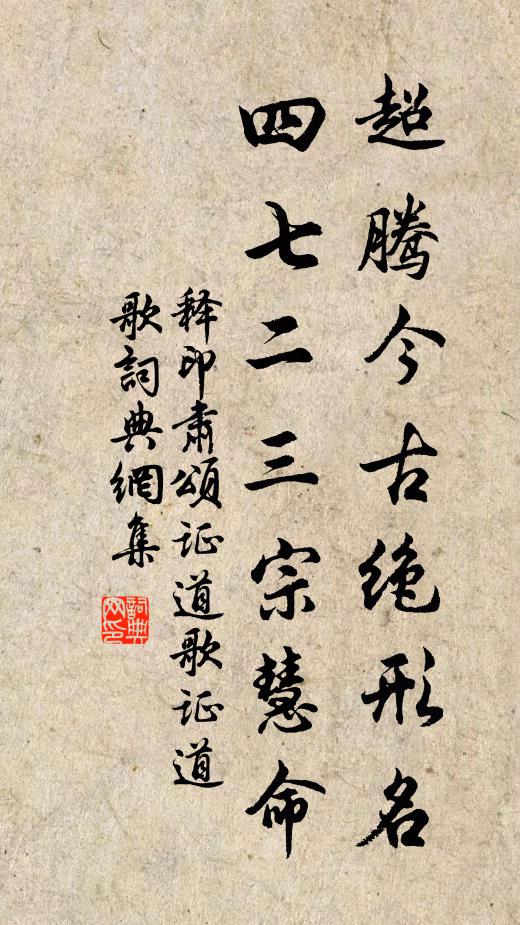 超腾今古绝形名
四七二三宗慧命
释印肃颂证道歌证道
歌詞典網集
詞典
网印